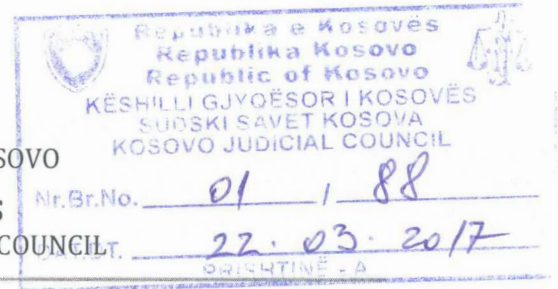 Republika e Kosovës
Republika Kosovo
Republic of Kosovo
KËSHILLI GJYQËSOR I KOSOVËS
SUDSKI SAVET KOSOVA
KOSOVO JUDICIAL COUNCIL
SOVO
Nr.Br.No. 01 / 88
S
COUNCIL
DT. 22.03.2017
PRISHTINË - A